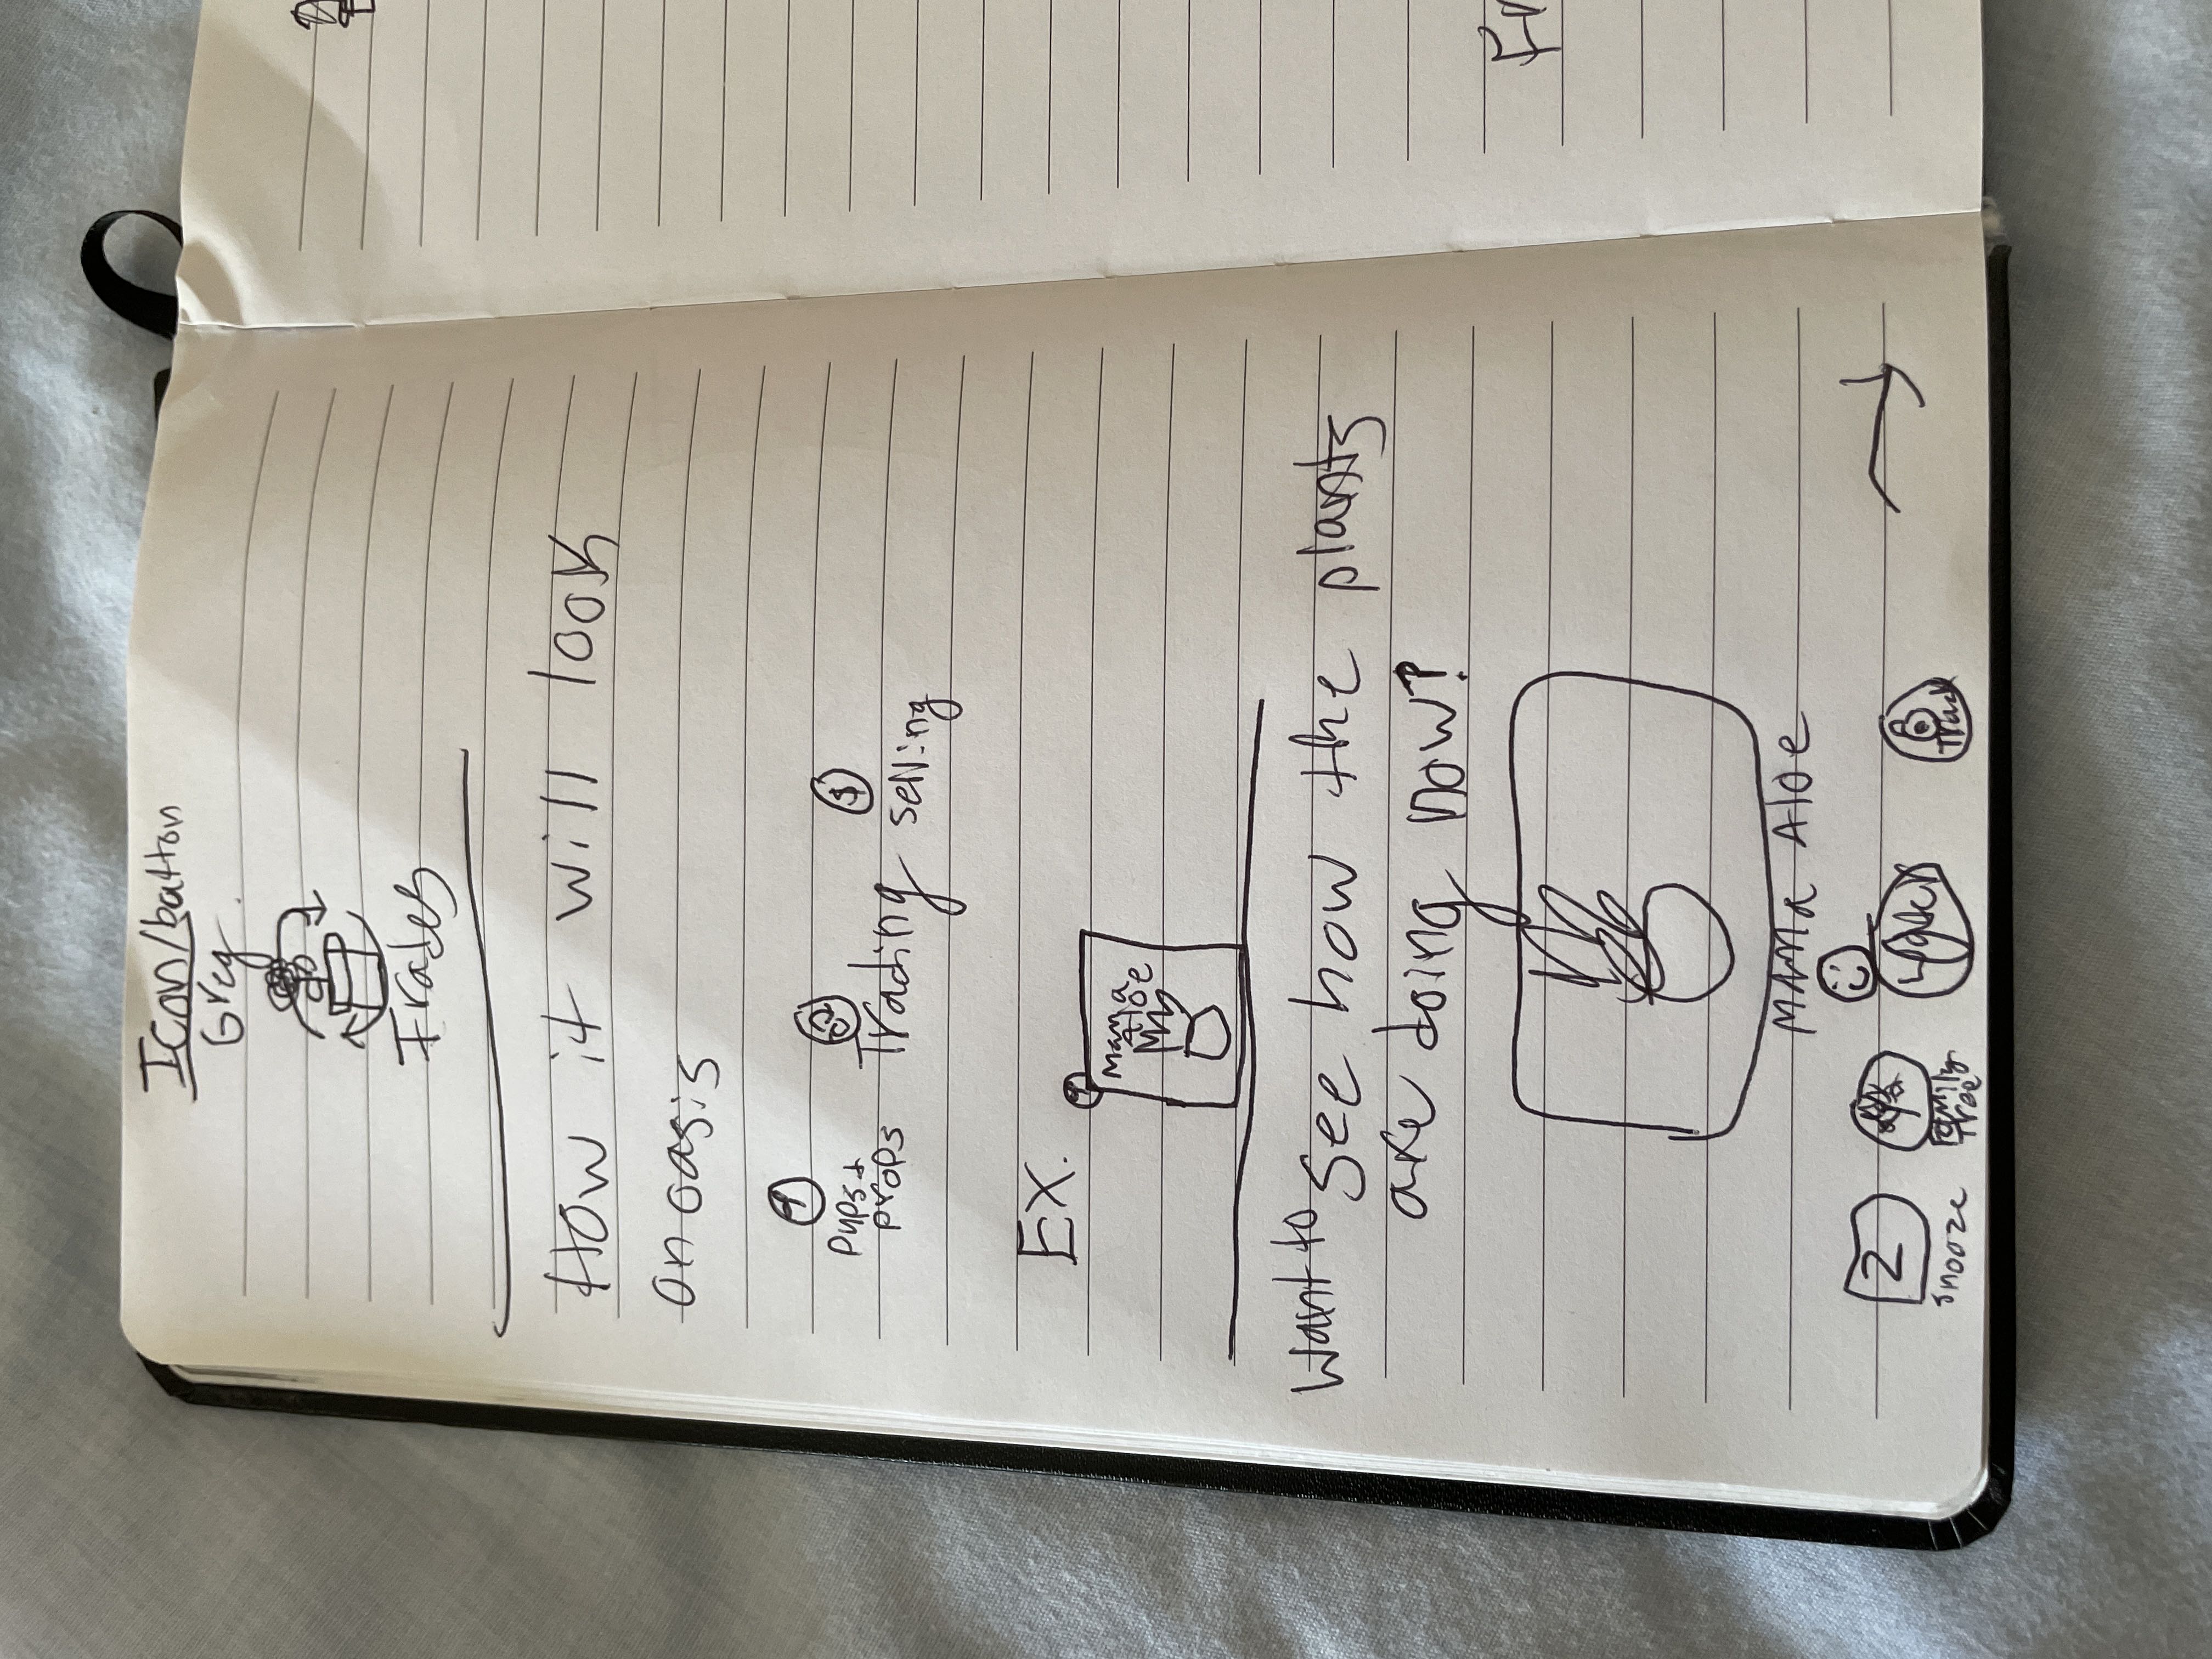 Icon/button
Greg
Trades
How it will look
on oasis
pups+
props
Trading
$
selling
EX.
Mama
Aloe
Want to see how the plants
are doing now?
MAMA Aloe
Z
snooze
family
tree
Track